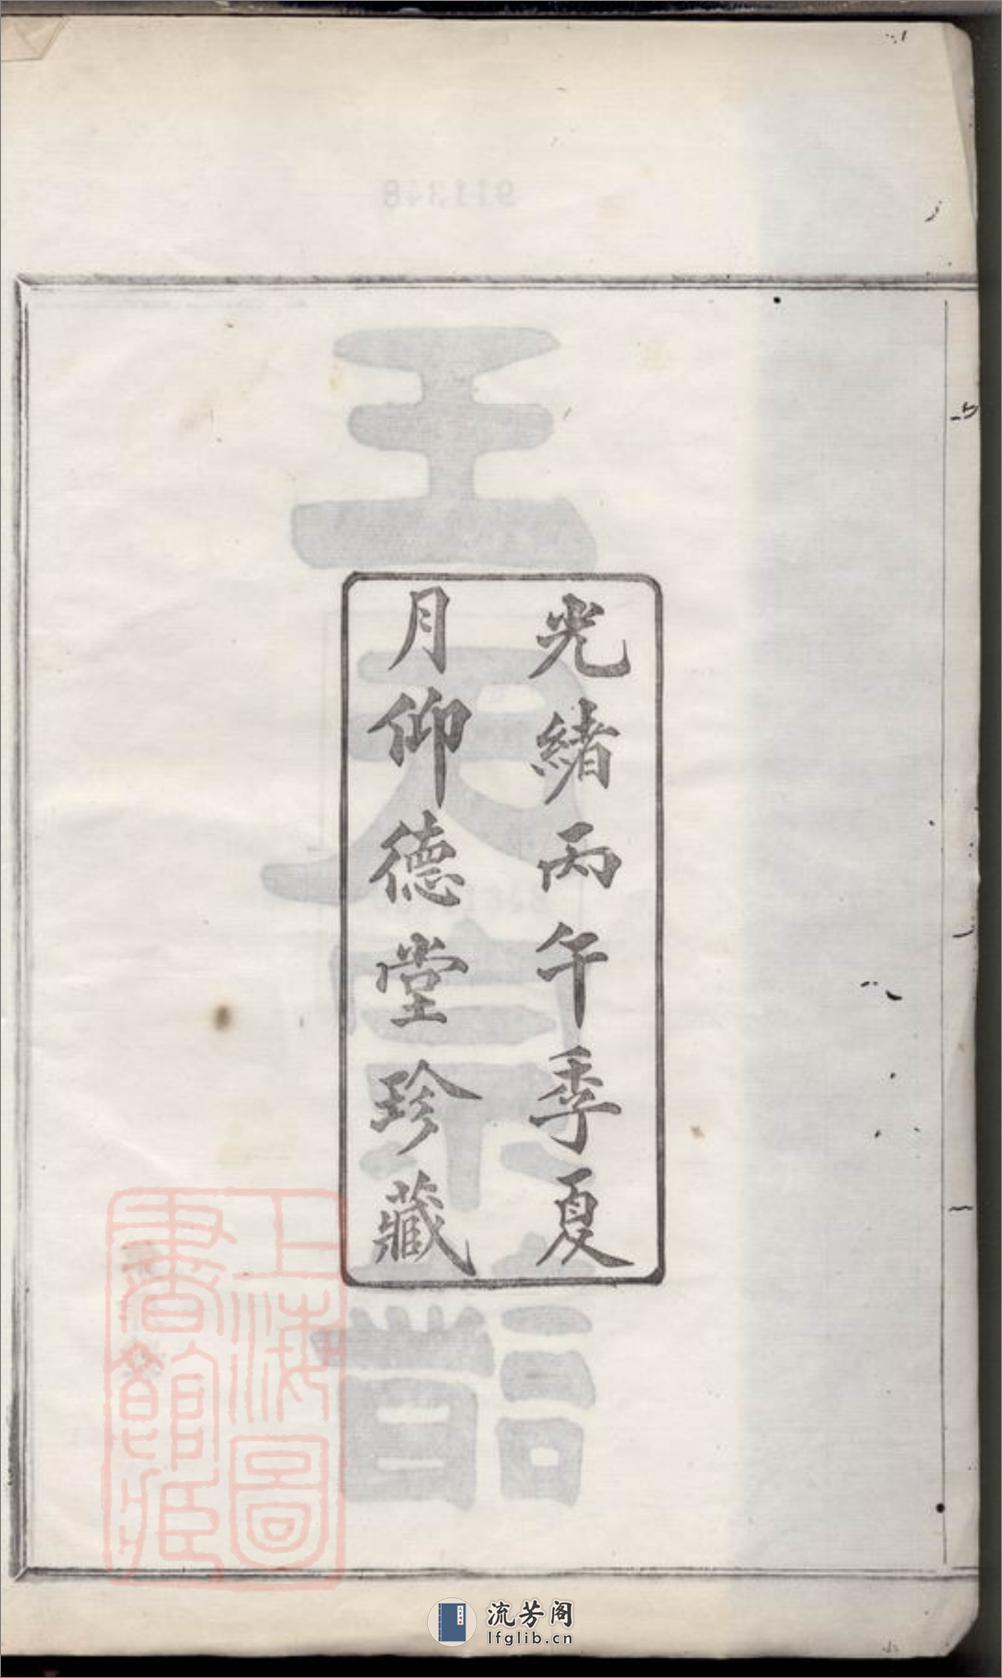 光緒丙午季夏
月仰德堂珍藏
上海圖
書館藏
流芳阁
lfglib.cn